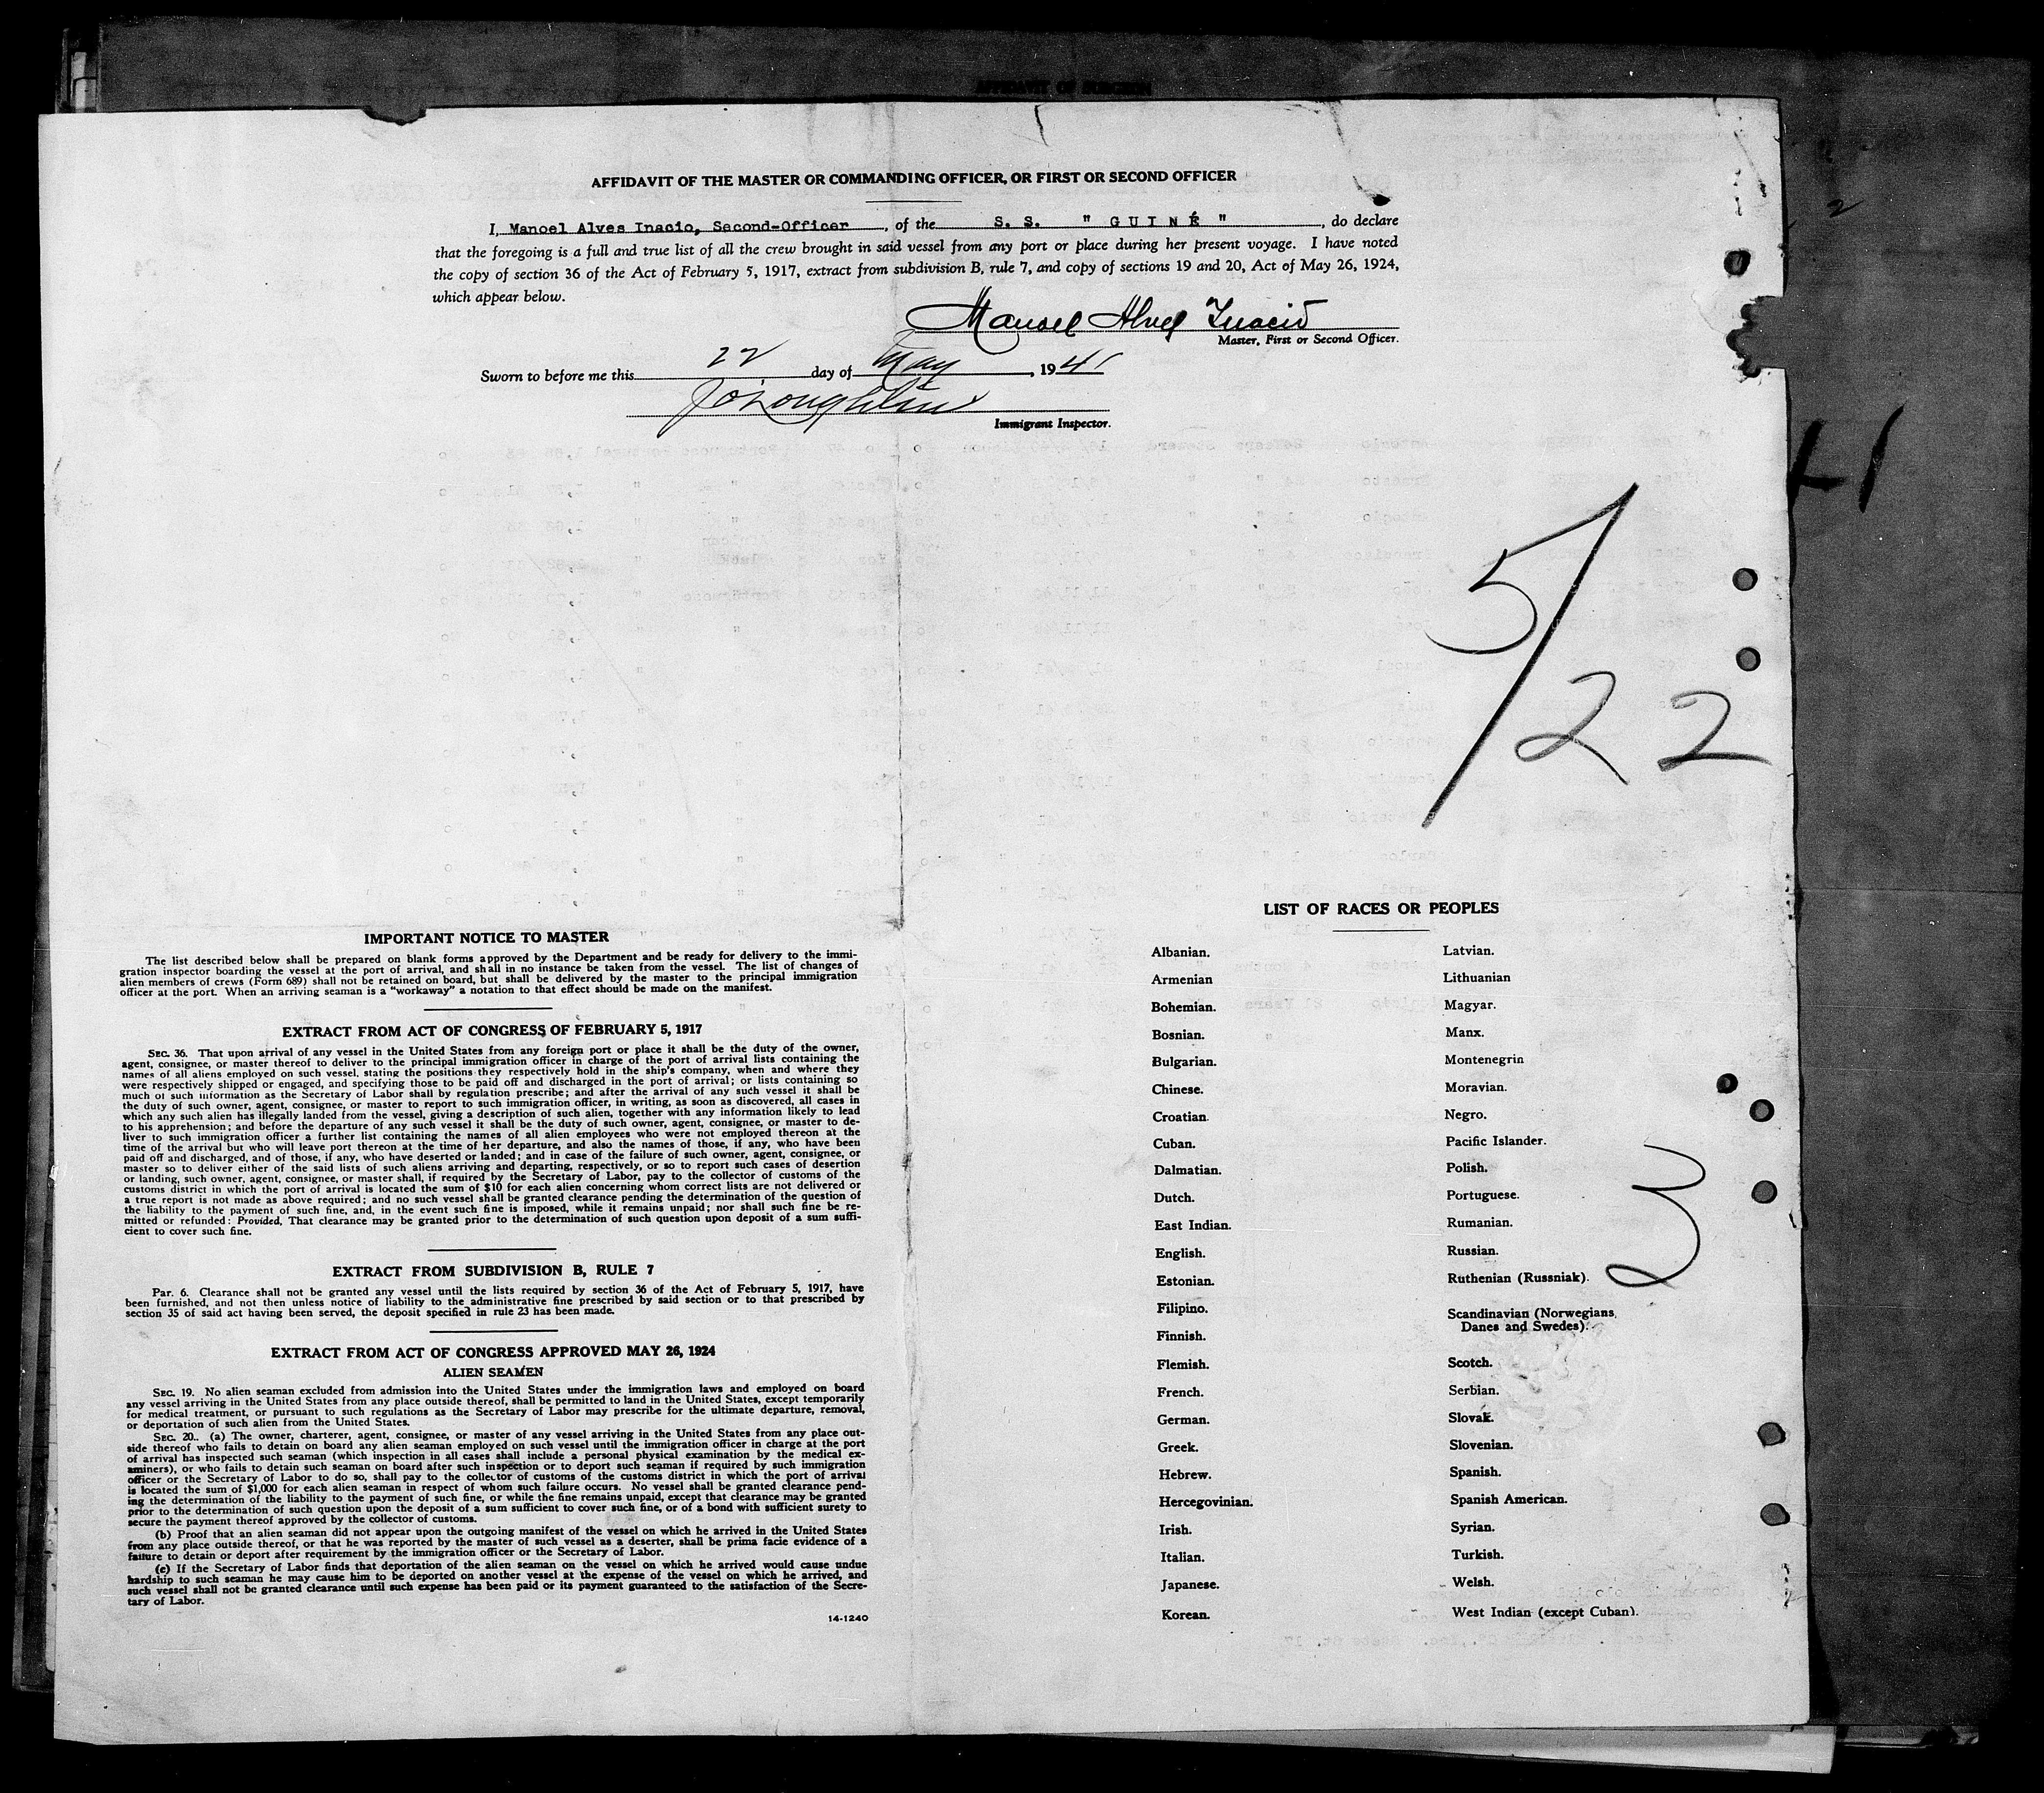 AFFIDAVIT OF THE MASTER OR COMMANDING OFFICER, OR FIRST OR SECOND OFFICER
I, Manoel Alves Inacio, Second-Officer, of the S. S. " G U I N É ", do declare
that the foregoing is a full and true list of all the crew brought in said vessel from any port or place during her present voyage. I have noted
the copy of section 36 of the Act of February 5, 1917, extract from subdivision B, rule 7, and copy of sections 19 and 20, Act of May 26, 1924,
which appear below.
Manoel Alves Inacio
Master, First or Second Officer.
Sworn to before me this 22 day of May, 1941
J O'Loughlin
Immigrant Inspector.
5/22
IMPORTANT NOTICE TO MASTER
The list described below shall be prepared on blank forms approved by the Department and be ready for delivery to the immi-
gration inspector boarding the vessel at the port of arrival, and shall in no instance be taken from the vessel. The list of changes of
alien members of crews (Form 689) shall not be retained on board, but shall be delivered by the master to the principal immigration
officer at the port. When an arriving seaman is a "workaway" a notation to that effect should be made on the manifest.
EXTRACT FROM ACT OF CONGRESS OF FEBRUARY 5, 1917
SEC. 36. That upon arrival of any vessel in the United States from any foreign port or place it shall be the duty of the owner,
agent, consignee, or master thereof to deliver to the principal immigration officer in charge of the port of arrival lists containing the
names of all aliens employed on such vessel, stating the positions they respectively hold in the ship's company, when and where they
were respectively shipped or engaged, and specifying those to be paid off and discharged in the port of arrival; or lists containing so
much of such information as the Secretary of Labor shall by regulation prescribe; and after the arrival of any such vessel it shall be
the duty of such owner, agent, consignee, or master to report to such immigration officer, in writing, as soon as discovered, all cases in
which any such alien has illegally landed from the vessel, giving a description of such alien, together with any information likely to lead
to his apprehension; and before the departure of any such vessel it shall be the duty of such owner, agent, consignee, or master to de-
liver to such immigration officer a further list containing the names of all alien employees who were not employed thereon at the
time of the arrival but who will leave port thereon at the time of her departure, and also the names of those, if any, who have been
paid off and discharged, and of those, if any, who have deserted or landed; and in case of the failure of such owner, agent, consignee, or
master so to deliver either of the said lists of such aliens arriving and departing, respectively, or so to report such cases of desertion
or landing, such owner, agent, consignee, or master shall, if required by the Secretary of Labor, pay to the collector of customs of the
customs district in which the port of arrival is located the sum of $10 for each alien concerning whom correct lists are not delivered or
a true report is not made as above required; and no such vessel shall be granted clearance pending the determination of the question of
the liability to the payment of such fine, and, in the event such fine is imposed, while it remains unpaid; nor shall such fine be re-
mitted or refunded: Provided, That clearance may be granted prior to the determination of such question upon deposit of a sum suffi-
cient to cover such fine.
EXTRACT FROM SUBDIVISION B, RULE 7
Par. 6. Clearance shall not be granted any vessel until the lists required by section 36 of the Act of February 5, 1917, have
been furnished, and not then unless notice of liability to the administrative fine prescribed by said section or to that prescribed by
section 35 of said act having been served, the deposit specified in rule 23 has been made.
EXTRACT FROM ACT OF CONGRESS APPROVED MAY 26, 1924
ALIEN SEAMEN
SEC. 19. No alien seaman excluded from admission into the United States under the immigration laws and employed on board
any vessel arriving in the United States from any place outside thereof, shall be permitted to land in the United States, except temporarily
for medical treatment, or pursuant to such regulations as the Secretary of Labor may prescribe for the ultimate departure, removal,
or deportation of such alien from the United States.
SEC. 20.. (a) The owner, charterer, agent, consignee, or master of any vessel arriving in the United States from any place out-
side thereof who fails to detain on board any alien seaman employed on such vessel until the immigration officer in charge at the port
of arrival has inspected such seaman (which inspection in all cases shall include a personal physical examination by the medical ex-
aminers), or who fails to detain such seaman on board after such inspection or to deport such seaman if required by such immigration
officer or the Secretary of Labor to do so, shall pay to the collector of customs of the customs district in which the port of arrival
is located the sum of $1,000 for each alien seaman in respect of whom such failure occurs. No vessel shall be granted clearance pend-
ing the determination of the liability to the payment of such fine, or while the fine remains unpaid, except that clearance may be granted
prior to the determination of such question upon the deposit of a sum sufficient to cover such fine, or of a bond with sufficient surety to
secure the payment thereof approved by the collector of customs.
(b) Proof that an alien seaman did not appear upon the outgoing manifest of the vessel on which he arrived in the United States
from any place outside thereof, or that he was reported by the master of such vessel as a deserter, shall be prima facie evidence of a
failure to detain or deport after requirement by the immigration officer or the Secretary of Labor.
(c) If the Secretary of Labor finds that deportation of the alien seaman on the vessel on which he arrived would cause undue
hardship to such seaman he may cause him to be deported on another vessel at the expense of the vessel on which he arrived, and
such vessel shall not be granted clearance until such expense has been paid or its payment guaranteed to the satisfaction of the Secre-
tary of Labor.
14-1240
LIST OF RACES OR PEOPLES
Albanian.
Armenian
Bohemian.
Bosnian.
Bulgarian.
Chinese.
Croatian
Cuban.
Dalmatian.
Dutch.
East Indian.
English.
Estonian.
Filipino.
Finnish.
Flemish.
French.
German.
Greek.
Hebrew.
Hercegovinian.
Irish.
Italian.
Japanese.
Korean.
Latvian.
Lithuanian
Magyar.
Manx.
Montenegrin
Moravian.
Negro.
Pacific Islander.
Polish.
Portuguese.
Rumanian.
Russian.
Ruthenian (Russniak).
Scandinavian (Norwegians,
Danes and Swedes).
Scotch.
Serbian.
Slovak.
Slovenian.
Spanish.
Spanish American.
Syrian.
Turkish.
Welsh.
West Indian (except Cuban).
3